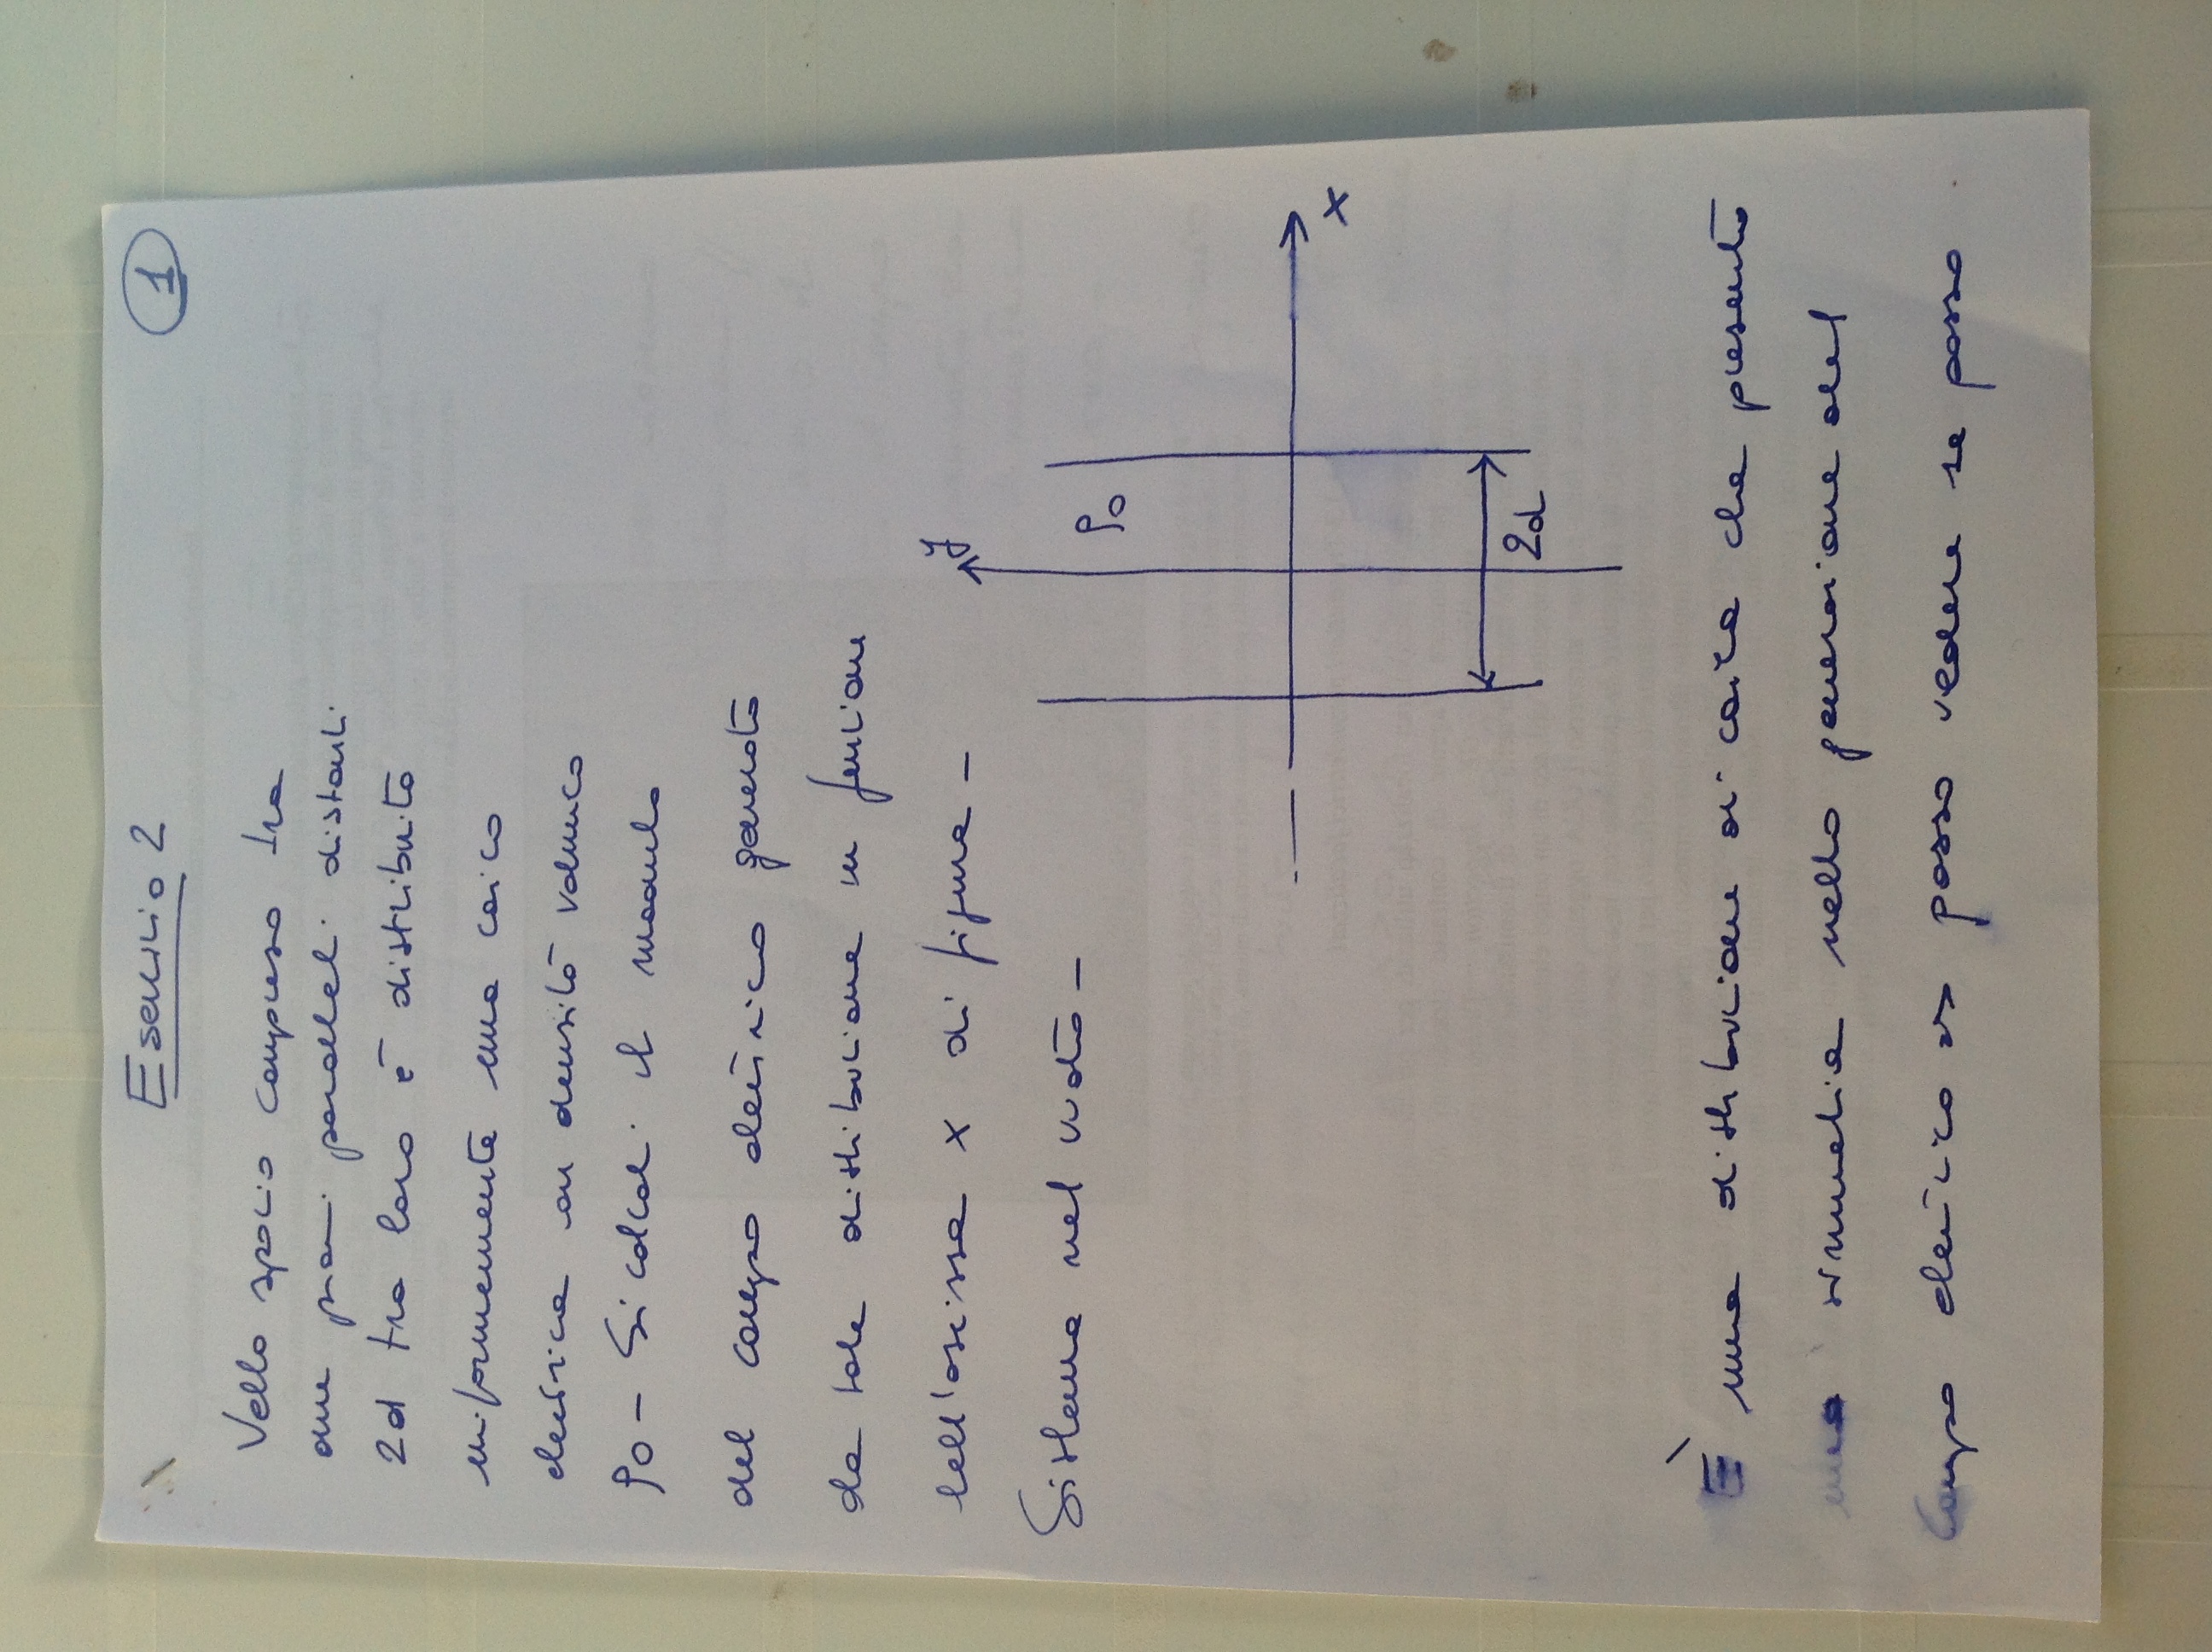 Esercizio 2
1
Nello spazio compreso tra
due piani paralleli distanti
2d tra loro è distribuita
uniformemente una carica
elettrica con densità volumica
ρ0 – Si calcoli il modulo
del campo elettrico generato
da tale distribuzione in funzione
dell'ascissa x di figura –
Sistema nel vuoto –
y
ρ0
x
2d
È una distribuzione di carica che presenta
una simmetria nella generazione del
campo elettrico => posso vedere se posso